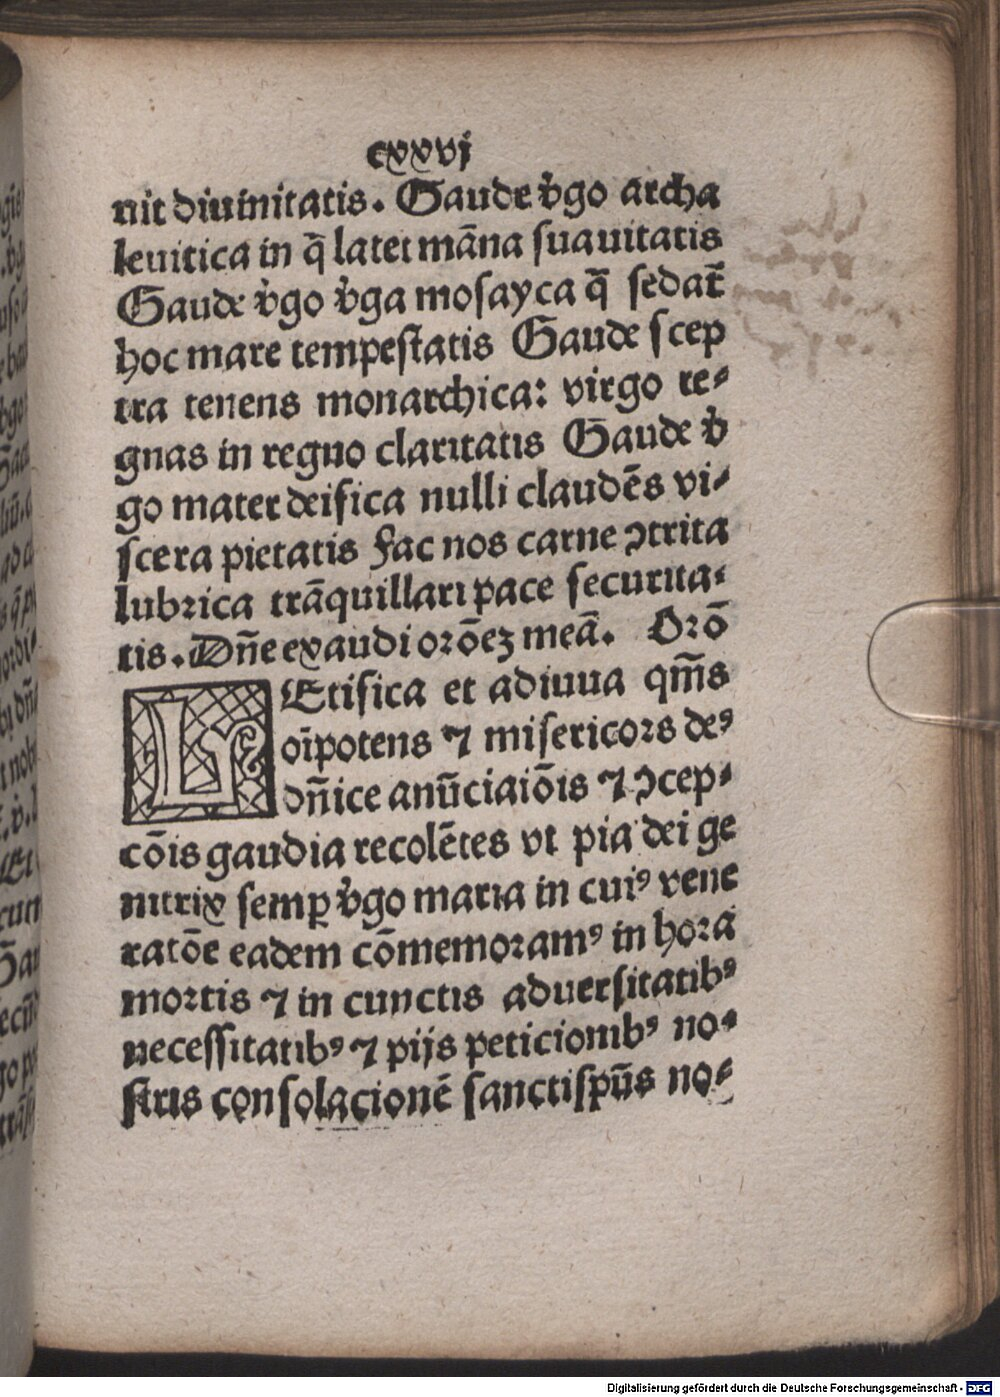 cxxvj
nit diuinitatis. Gaude v̓go archa
leuitica in q̄ latet māna suauitatis
Gaude v̓go v̓ga mosayca q̄ sedat̄
hoc mare tempestatis Gaude scep
tra tenens monarchica: virgo re⸗
gnas in regno claritatis Gaude v̓
go mater deifica nulli claudēs vi⸗
scera pietatis Fac nos carne ꝯtrita
lubrica trāquillari pace securita⸗
tis. Dn̄e exaudi orōeꝫ meā. Orō
LEtifica et adiuua qm̄s
oīpotens ⁊ misericors deꝰ
dn̄ice anūciaiōis ⁊ ꝯcep⸗
cōis gaudia recolētes vt pia dei ge
nitrix semꝑ v̓go maria in cuiꝰ vene
ratōe eadem cōmemoramꝰ in hora
mortis ⁊ in cunctis aduersitatibꝰ
necessitatibꝰ ⁊ pijs peticionibꝰ no⸗
stris consolacionē sanctisp̄us no⸗
Digitalisierung gefördert durch die Deutsche Forschungsgemeinschaft - DFG